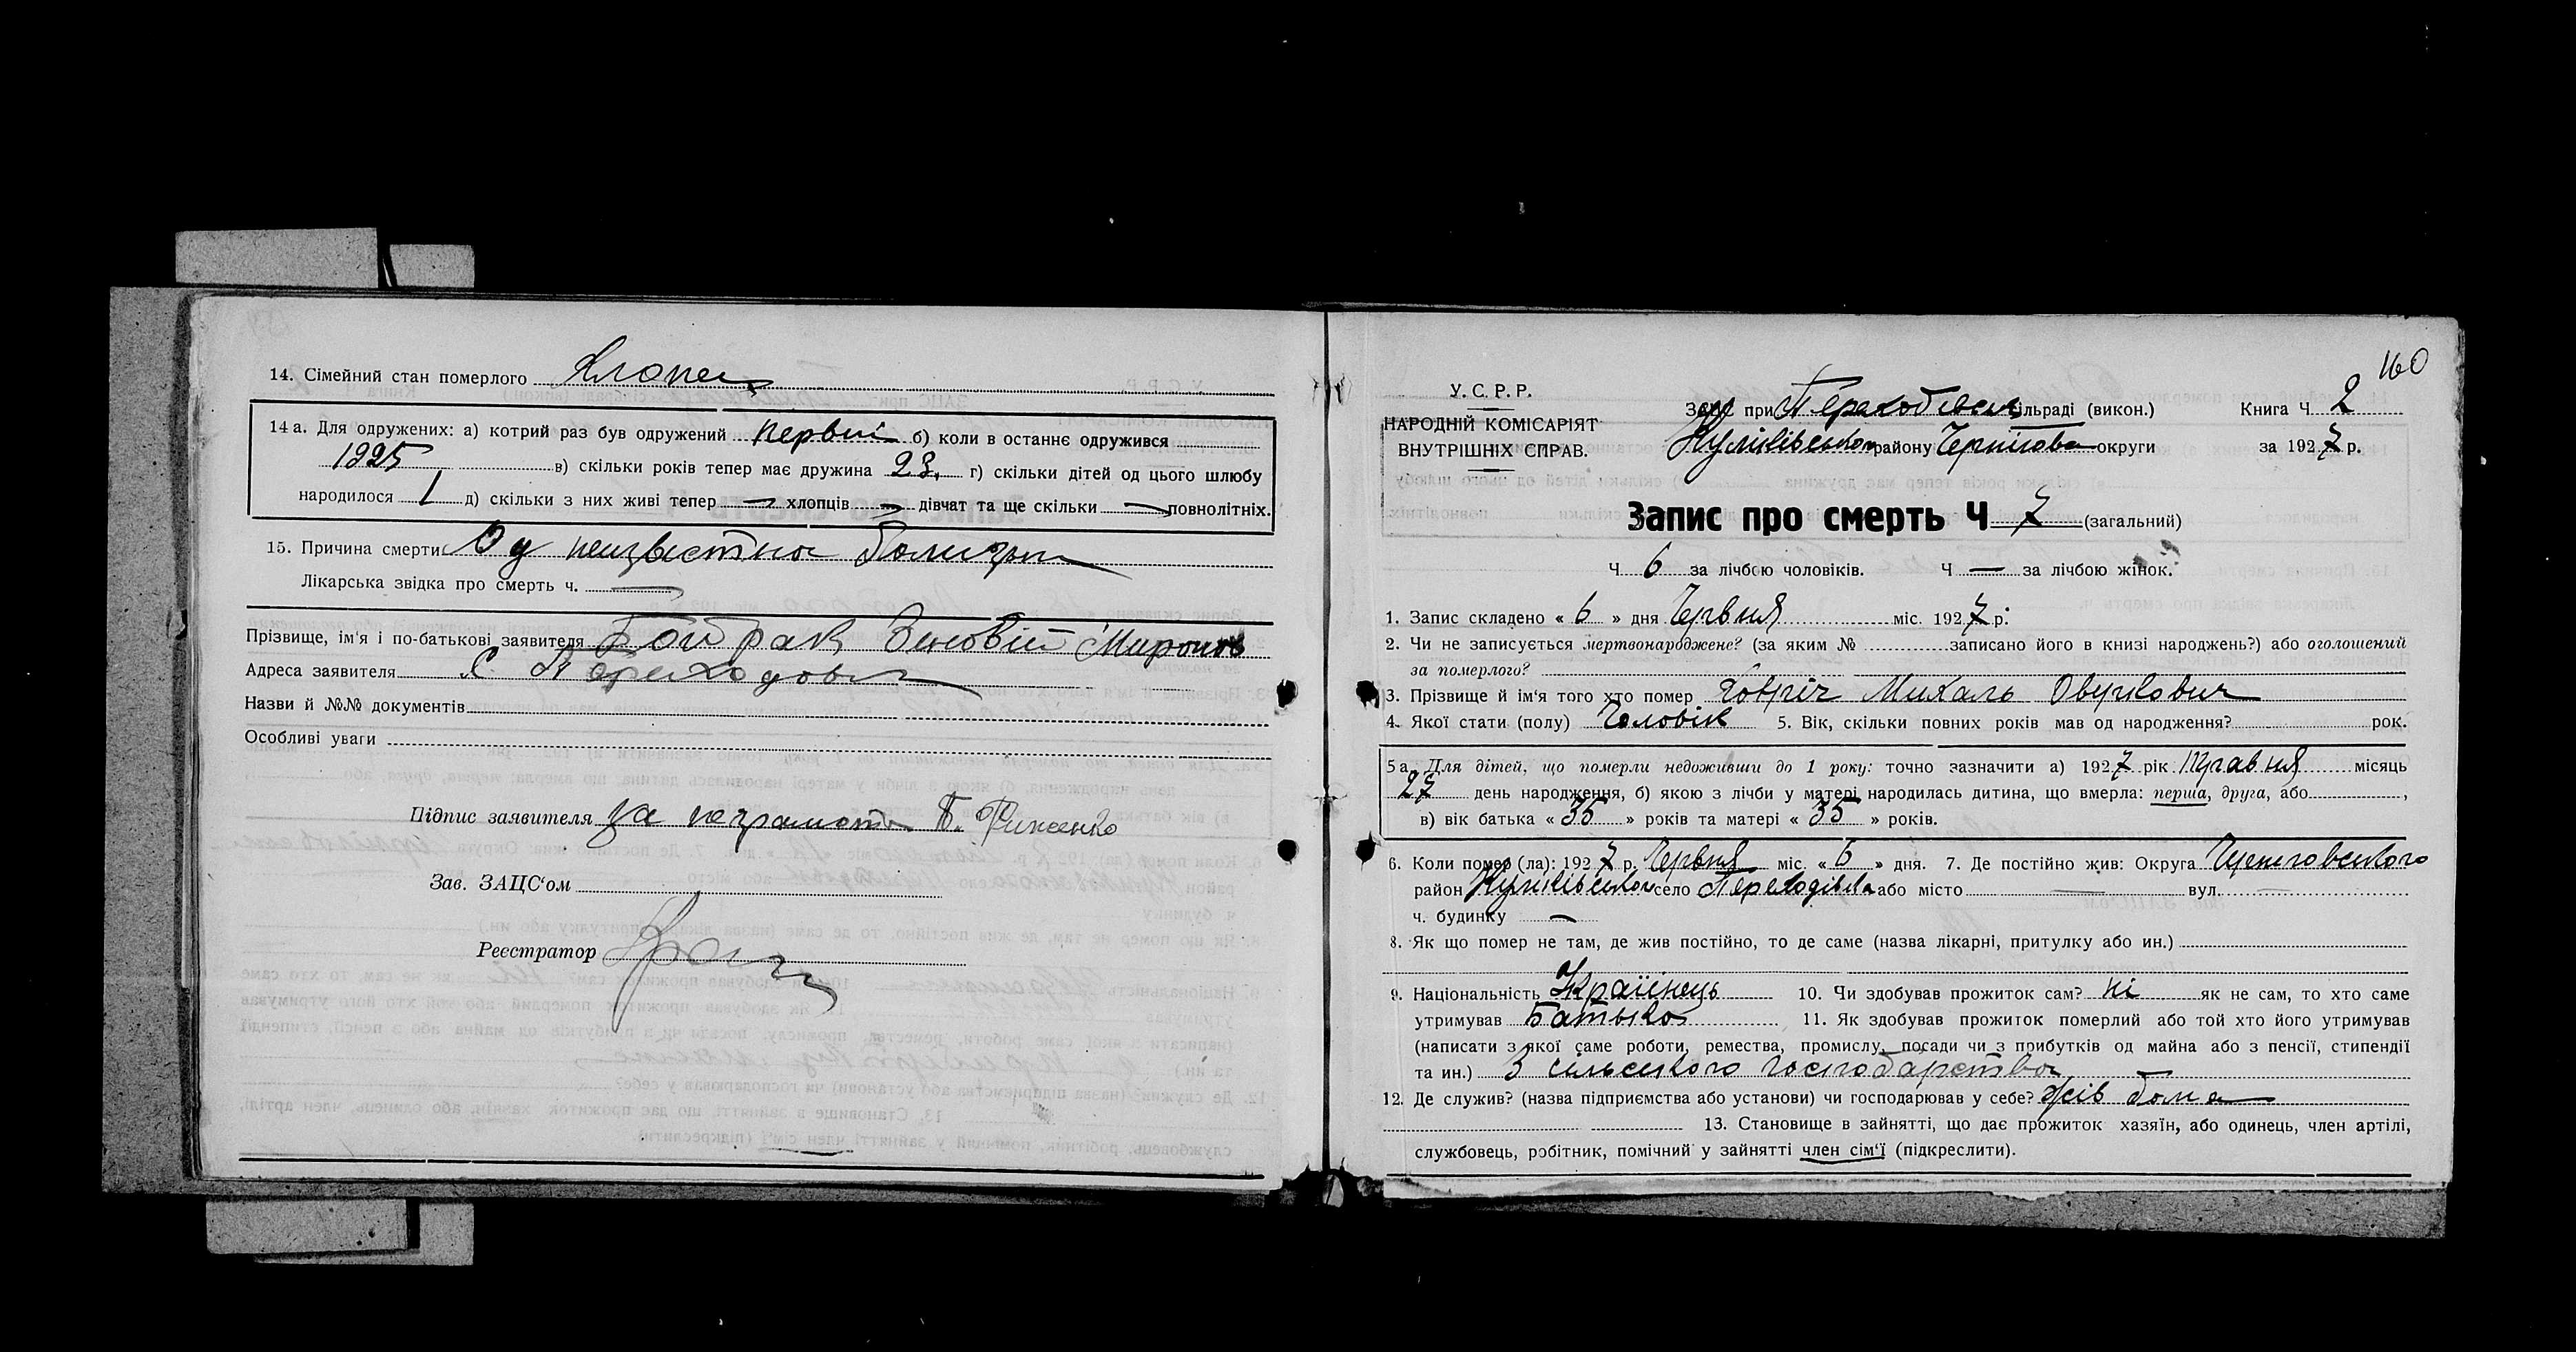 14. Сімейний стан померлого Хлопец
14 а. Для одружених: а) котрий раз був одружений первий б) коли в останнє одружився
1925 в) скільки років тепер має дружина 23, г) скільки дітей од цього шлюбу
народилося 1 д) скільки з них живі тепер — хлопців — дівчат та ще скільки — повнолітніх.
15. Причина смерти Од неизвестно
Лікарська звідка про смерть ч. —
Прізвище, ім'я і по-батькові заявителя Зіновій Миронов
Адреса заявителя С
Назви й №№ документів
Особливі уваги
Підпис заявителя За неграмотн
Зав. ЗАЦС'ом
Реєстратор
160
У. С. Р. Р.
НАРОДНІЙ КОМІСАРІЯТ
ВНУТРІШНІХ СПРАВ.
ЗАЦС при сільраді (викон.) Книга Ч 2
Куликівськом району Чернігов округи за 1927 р.
Запис про смерть Ч 7 (загальний)
Ч 6 за лічбою чоловіків. Ч — за лічбою жінок.
1. Запис складено « 6 » дня Червня міс. 1927 р.
2. Чи не записується мертвонароджене? (за яким № записано його в книзі народжень?) або оголошений
за померлого?
3. Прізвище й ім'я того хто помер Михаль
4. Якої стати (полу) Чоловік 5. Вік, скільки повних років мав од народження? рок.
5 а. Для дітей, що померли недоживши до 1 року: точно зазначити а) 1927 рік Травня місяць
27 день народження, б) якою з лічби у матері народилась дитина, що вмерла: перша, друга, або ,
в) вік батька « 35 » років та матері « 35 » років.
6. Коли помер (ла): 1927 р. Червня міс. « 6 » дня. 7. Де постійно жив: Округа
район Куликівськом село Переходівка або місто — вул. —
ч. будинку —
8. Як що помер не там, де жив постійно, то де саме (назва лікарні, притулку або ин.)
9. Національність Українець 10. Чи здобував прожиток сам? ні як не сам, то хто саме
утримував Батько 11. Як здобував прожиток померлий або той хто його утримував
(написати з якої саме роботи, ремества, промислу, посади чи з прибутків од майна або з пенсії, стипендії
та ин.) З сільського господарства
12. Де служив? (назва підприємства або установи) чи господарював у себе? Жів дома
13. Становище в зайнятті, що дає прожиток хазяїн, або одинець, член артілі,
службовець, робітник, помічний у зайнятті член сім'ї (підкреслити).